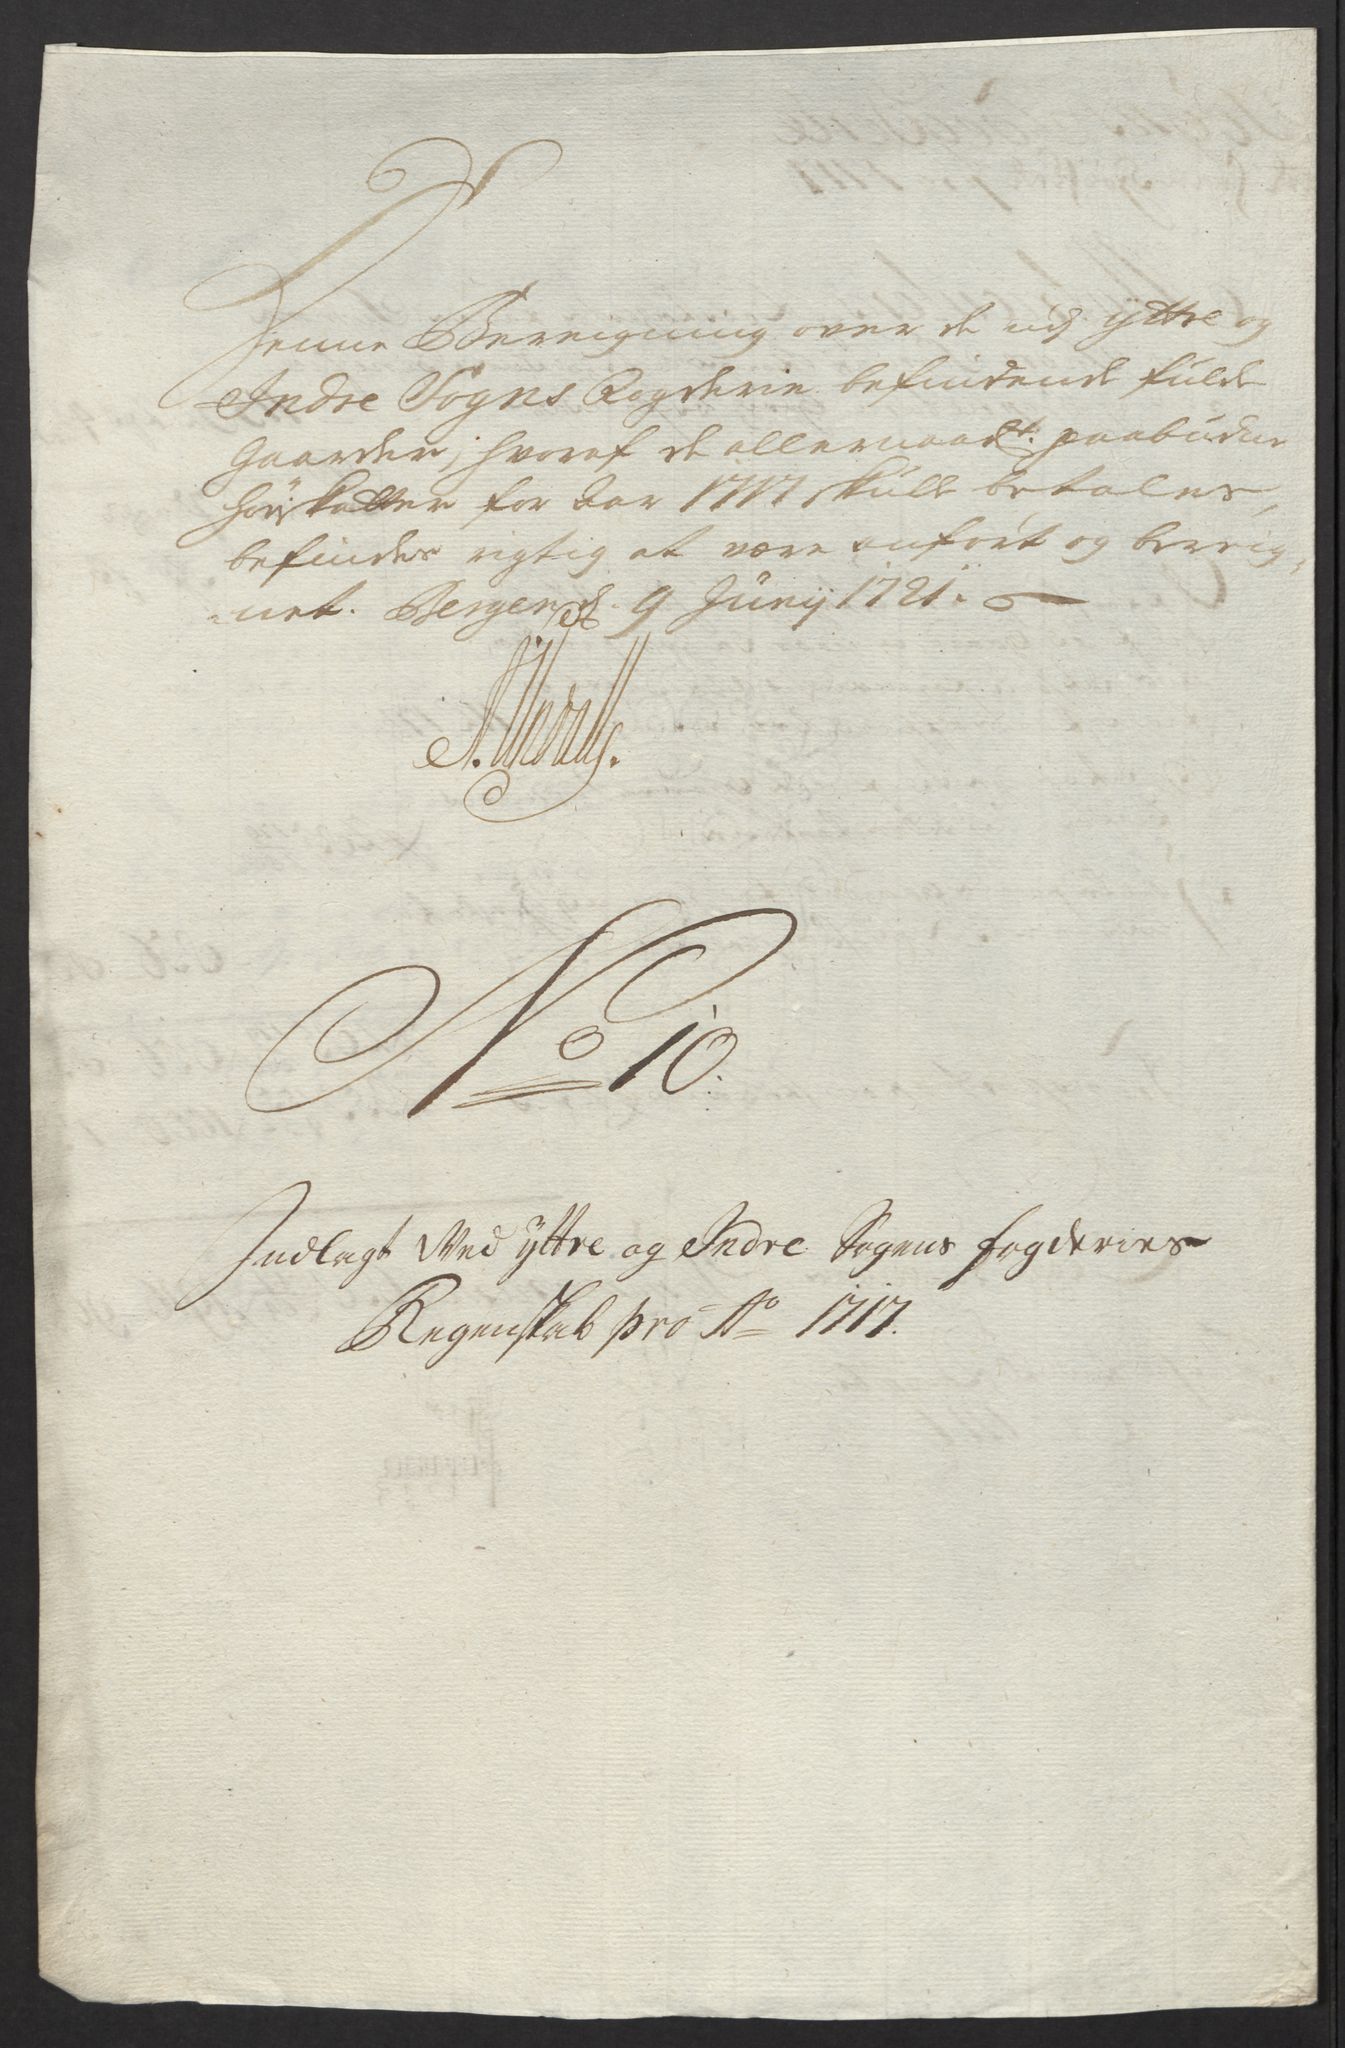 Denne Bereigning over de udj ÿttre og
Indre Sogns Fogderie befindende fulde
Gaarder, hvoraf de allernaadst. paabudne
Skatter for Aar 1717 skulle betales,
befindes rigtig at være anført og bereig¬
net. Bergen d. 9 Junij 1721.
No 10.
Indlagt Ved ÿttre og Indre Sogens fogderies
Regenskab pro Ao 1717.